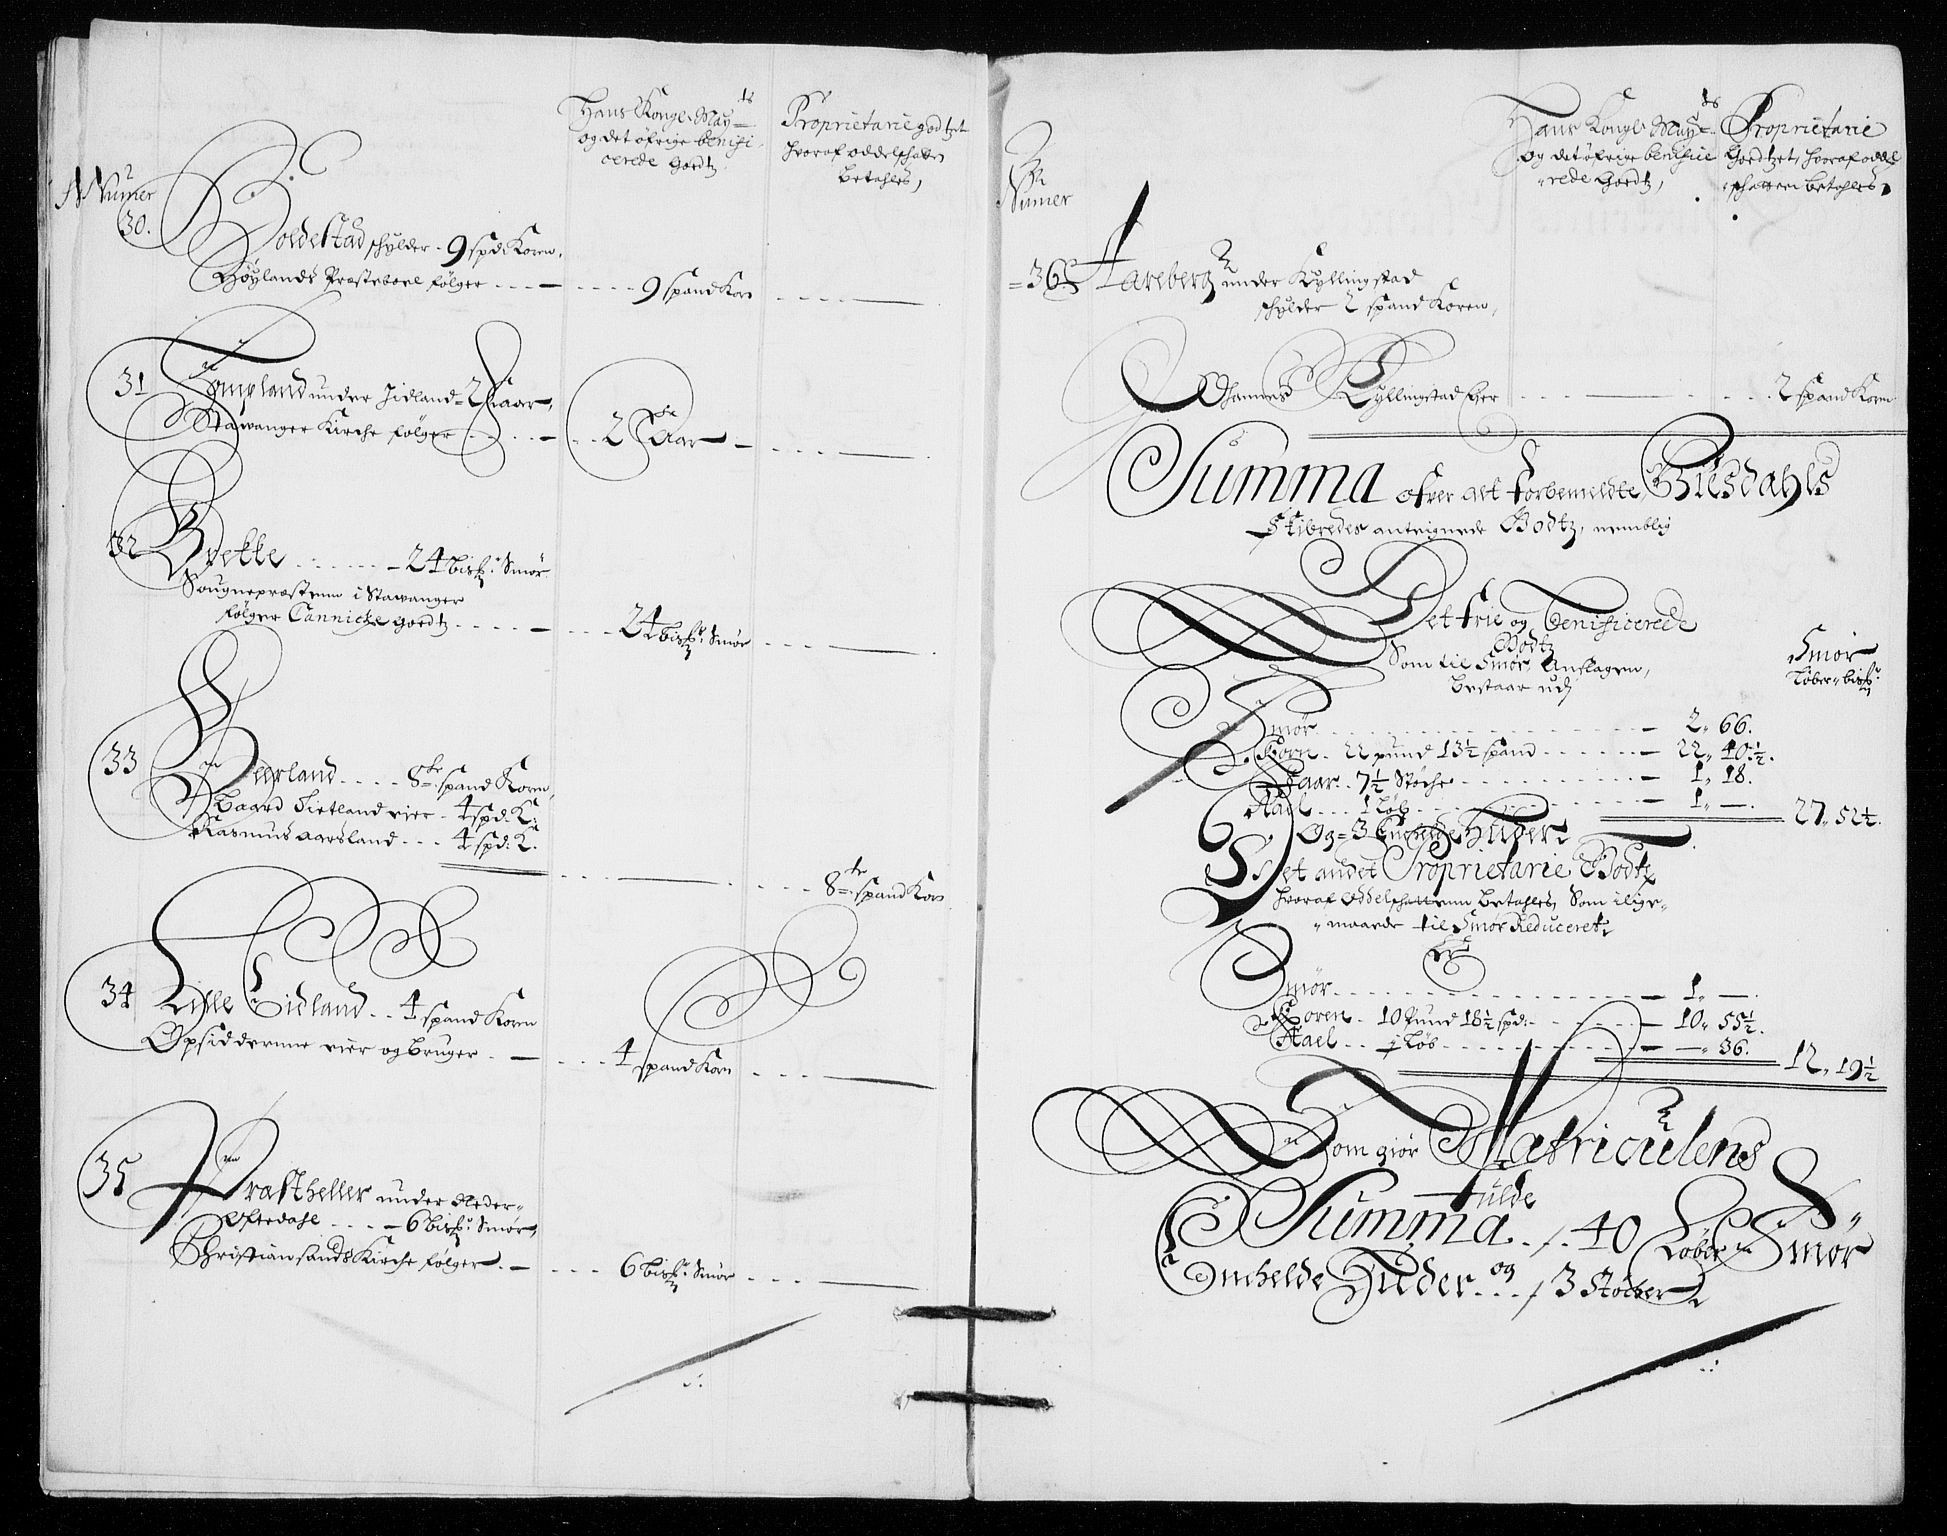 Hans Kongl. May.ts
og det öfrige benifi-
cerede Goedtz
Proprietarie godtzet
hvoraf oddelschatten
betahles,
Numer
30.
Goldestad schylder. 9 spd. Koren,
Høylands Præsteboel følger - - - - 9 spand Korn
31 Tømpland under Jidland - 2 Faar,
Stawanger Kirche følger - - - 2 Faar
32 Grette - - - 24 bispd. Smør
Sougnepræstenn i Stawanger
følger Cannicke Goedtz - - - 24 bispd. Smør
33 land - - - 8te spand Korn,
Baard Tietland eier - 4 spd. K:
Rasmus Aarsland - - - 4 spd. K.
8te spand Korn
34 Lisle Eidland - - 4 spand Korn
Opsidderenne eier og bruger - - - 4 spand Korn
35 Præstheller under Neder-
Oftedahl - - - 6 bispd. Smør,
Christiansands Kirche følger - - - 6 bispd. Smør
Hans Kongl. May.ts
og det öfrige benificie
-rede Goedtz,
Proprietarie
Goedtzet, hvoraf oddel
-schatten betahles,
Numer
36. Hareberg under Kyllingstad
schylder 2 spand Koren,
Johannes Kyllingstad Eier - - - 2 spand Korn
Summa ofver alt forbemeldte Giesdahls
Skibredes antegnede Godtz, nemblig
Det frie og Benificerede
Godtz
Som til Smør Anslagen,
bestaar udj
Smør
Løber. bispd.
Smør - - - 2. 66.
Korn - 22 pund 13½ spand - - - 22. 40½.
Faar - 7½ Støche - - - 1. 18.
Mael - - 1 Løb - - - 1. —. 27. 52½.
Og - 3 Huder
Det andet Proprietarie Godtz
hvoraf Oddelschattenn betahles, Som i lige-
-maade til Smør Reduceret
Smør - - - 1. —.
Koren - 10 Pund 18½ spd: - - - 10. 55½.
Mael - - ½ Løb - - - —. 36. 12. 19½
Som giør Matriculens
fulde
Summa - /. 40 Løber Smør
og
Huder - - /3 Støcher